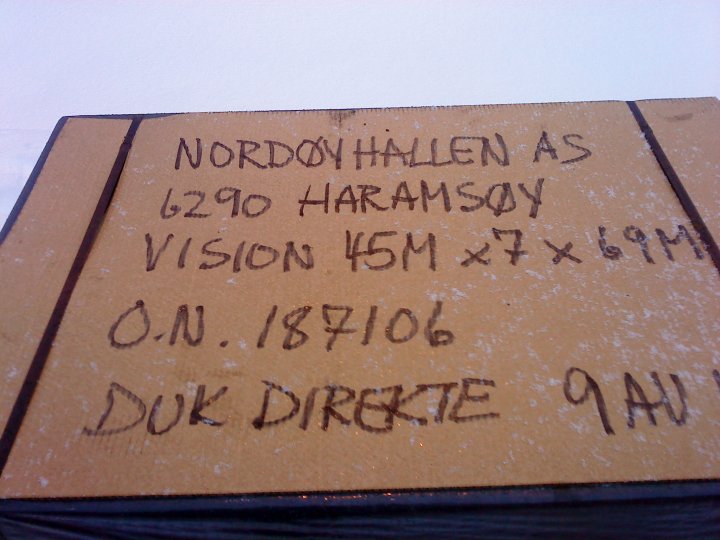 NORDØYHALLEN AS
6290 HARAMSØY
VISION 45M x 7 x 69M
O.N. 187106
DUK DIREKTE 9 AV